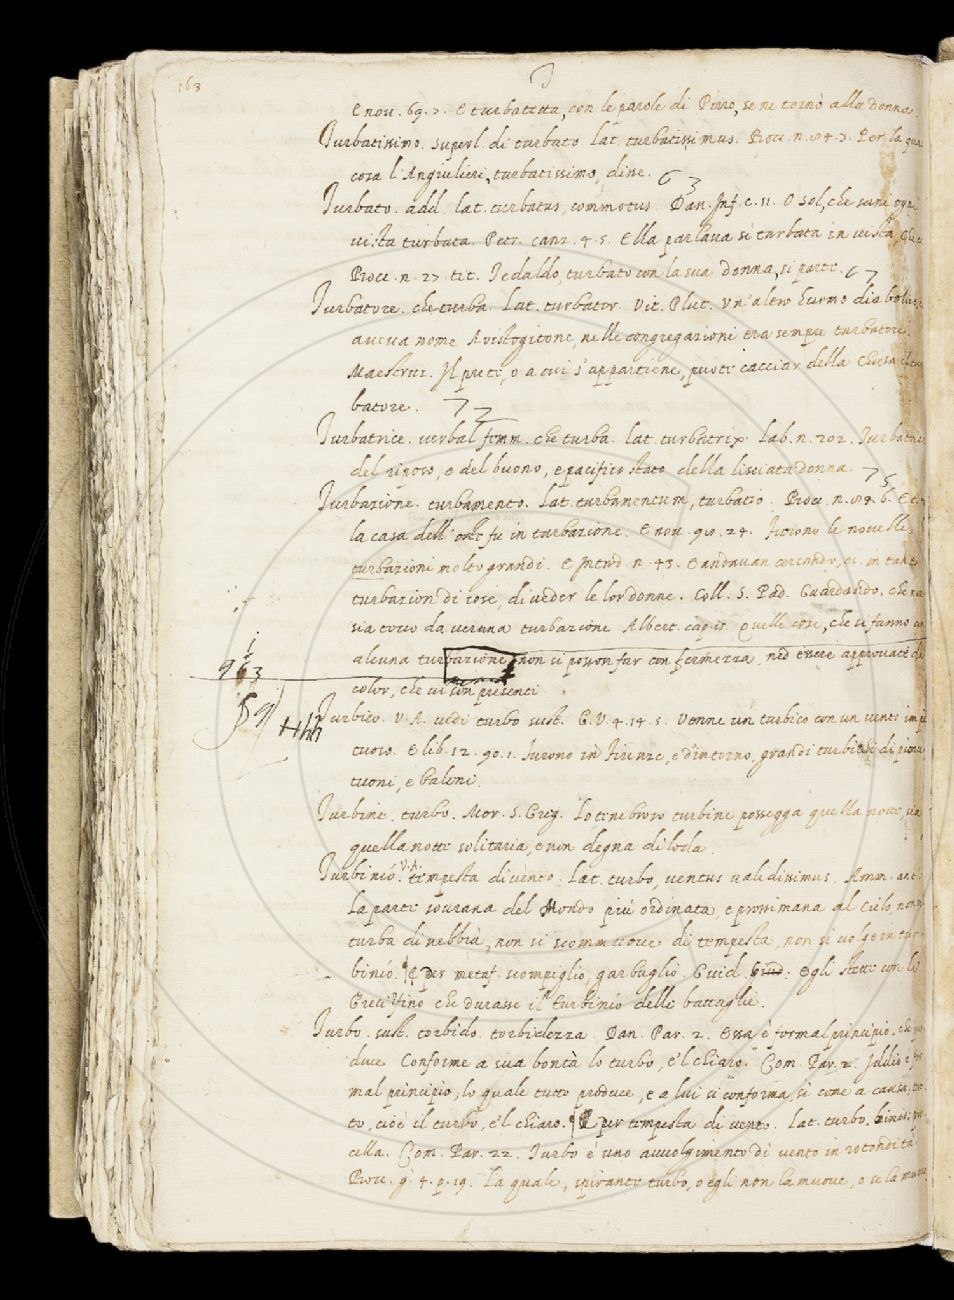 163
E nou. 69. 7. E turbatetta, con le parole di Pirro, se ne tornò alla donna.
Turbatissimo. superl. di turbato lat. turbatissimus. Bocc. n. 84. 7. Per la qual
cosa l'Angiulieri, turbatissimo, disse. 63
Turbato. add. lat. turbatus, commotus. Dan. Inf. c. 11. O sol, che sani ogni
vista turbata. Petr. canz. 4. 5. Ella parlaua sì turbata in vista,
Bocc. n. 27. tit. Tedaldo, turbato con la sua donna, si parte. 67
Turbatore. che turba. Lat. turbator. Vit. Plut. Vn' altro huomo
aueua nome Aristogitone, nelle congregazioni era sempre turbatore.
Maestruz. Il prete, o a cui s'appartiene, puote cacciar della Chiesa
batore. 72
Turbatrice. verbal femm. che turba. lat. turbatrix. Lab. n. 202. Turbatrice
del riposo, e del buono, e pacifico stato della lisciata donna. 75
Turbazione. turbamento. Lat. turbamentum, turbatio. Bocc. n. 84. 6.
la casa dell'oste fu in turbazione. E nou. 98. 24. furono le nouelle
turbazioni molto grandi. E Introd. n. 43. E andauan cercando, ec. in tanta
turbazion di cose, di veder le lor donne. Coll. S. Pad. Guardando, che non
sia tocco da veruna turbazione Albert. cap. Quelle cose, che si fanno con
alcuna turbazione, non si posson far con fermezza, nè essere approuate da
963
color, che vi son presenti
59 Hhh
Turbico. V. A. vedi turbo sust. G. V. 4. 14. 5. Venne un turbico con un vento impe
tuoso. E lib. 12. 90. 1. furono in Firenze, e d'intorno, grandi turbichi di pioua
tuoni, e baleni.
Turbine. turbo. Mor. S. Greg. Lo tenebroso turbine possegga quella notte, sia
quella notte solitaria, e non degna di loda.
V. A.
Turbinío. tempesta di vento. Lat. turbo, ventus validissimus. Amm. ant.
La parte sourana del Mondo più ordinata, e prossimana al Cielo, non
turba di nebbia, non si scommuoue di tempesta, non si volge in tur-
binío. ¶ E per metaf. scompiglio, garbuglio. Guid. Giud. Egli stette con li
Greci infino che durasse il turbinío delle battaglie.
Turbo. sust. torbido. torbidezza. Dan. Par. 2. Essa è formal principio, che pro
duce Conforme a sua bontà lo turbo, e 'l chiaro. Com. Par. 2. Iddio è for
mal principio, lo quale tutto produce, e a lui si conforma, sì come a causa, tut-
to, cioè il turbo, e 'l chiaro. ¶ E per tempesta di vento. Lat. turbo,
cella. Com. Par. 22. Turbo è uno auuolgimento di vento in rotondità
Bocc. g. 4. p. 19. La quale, spirante turbo, o egli non la muoue, o se la muoue